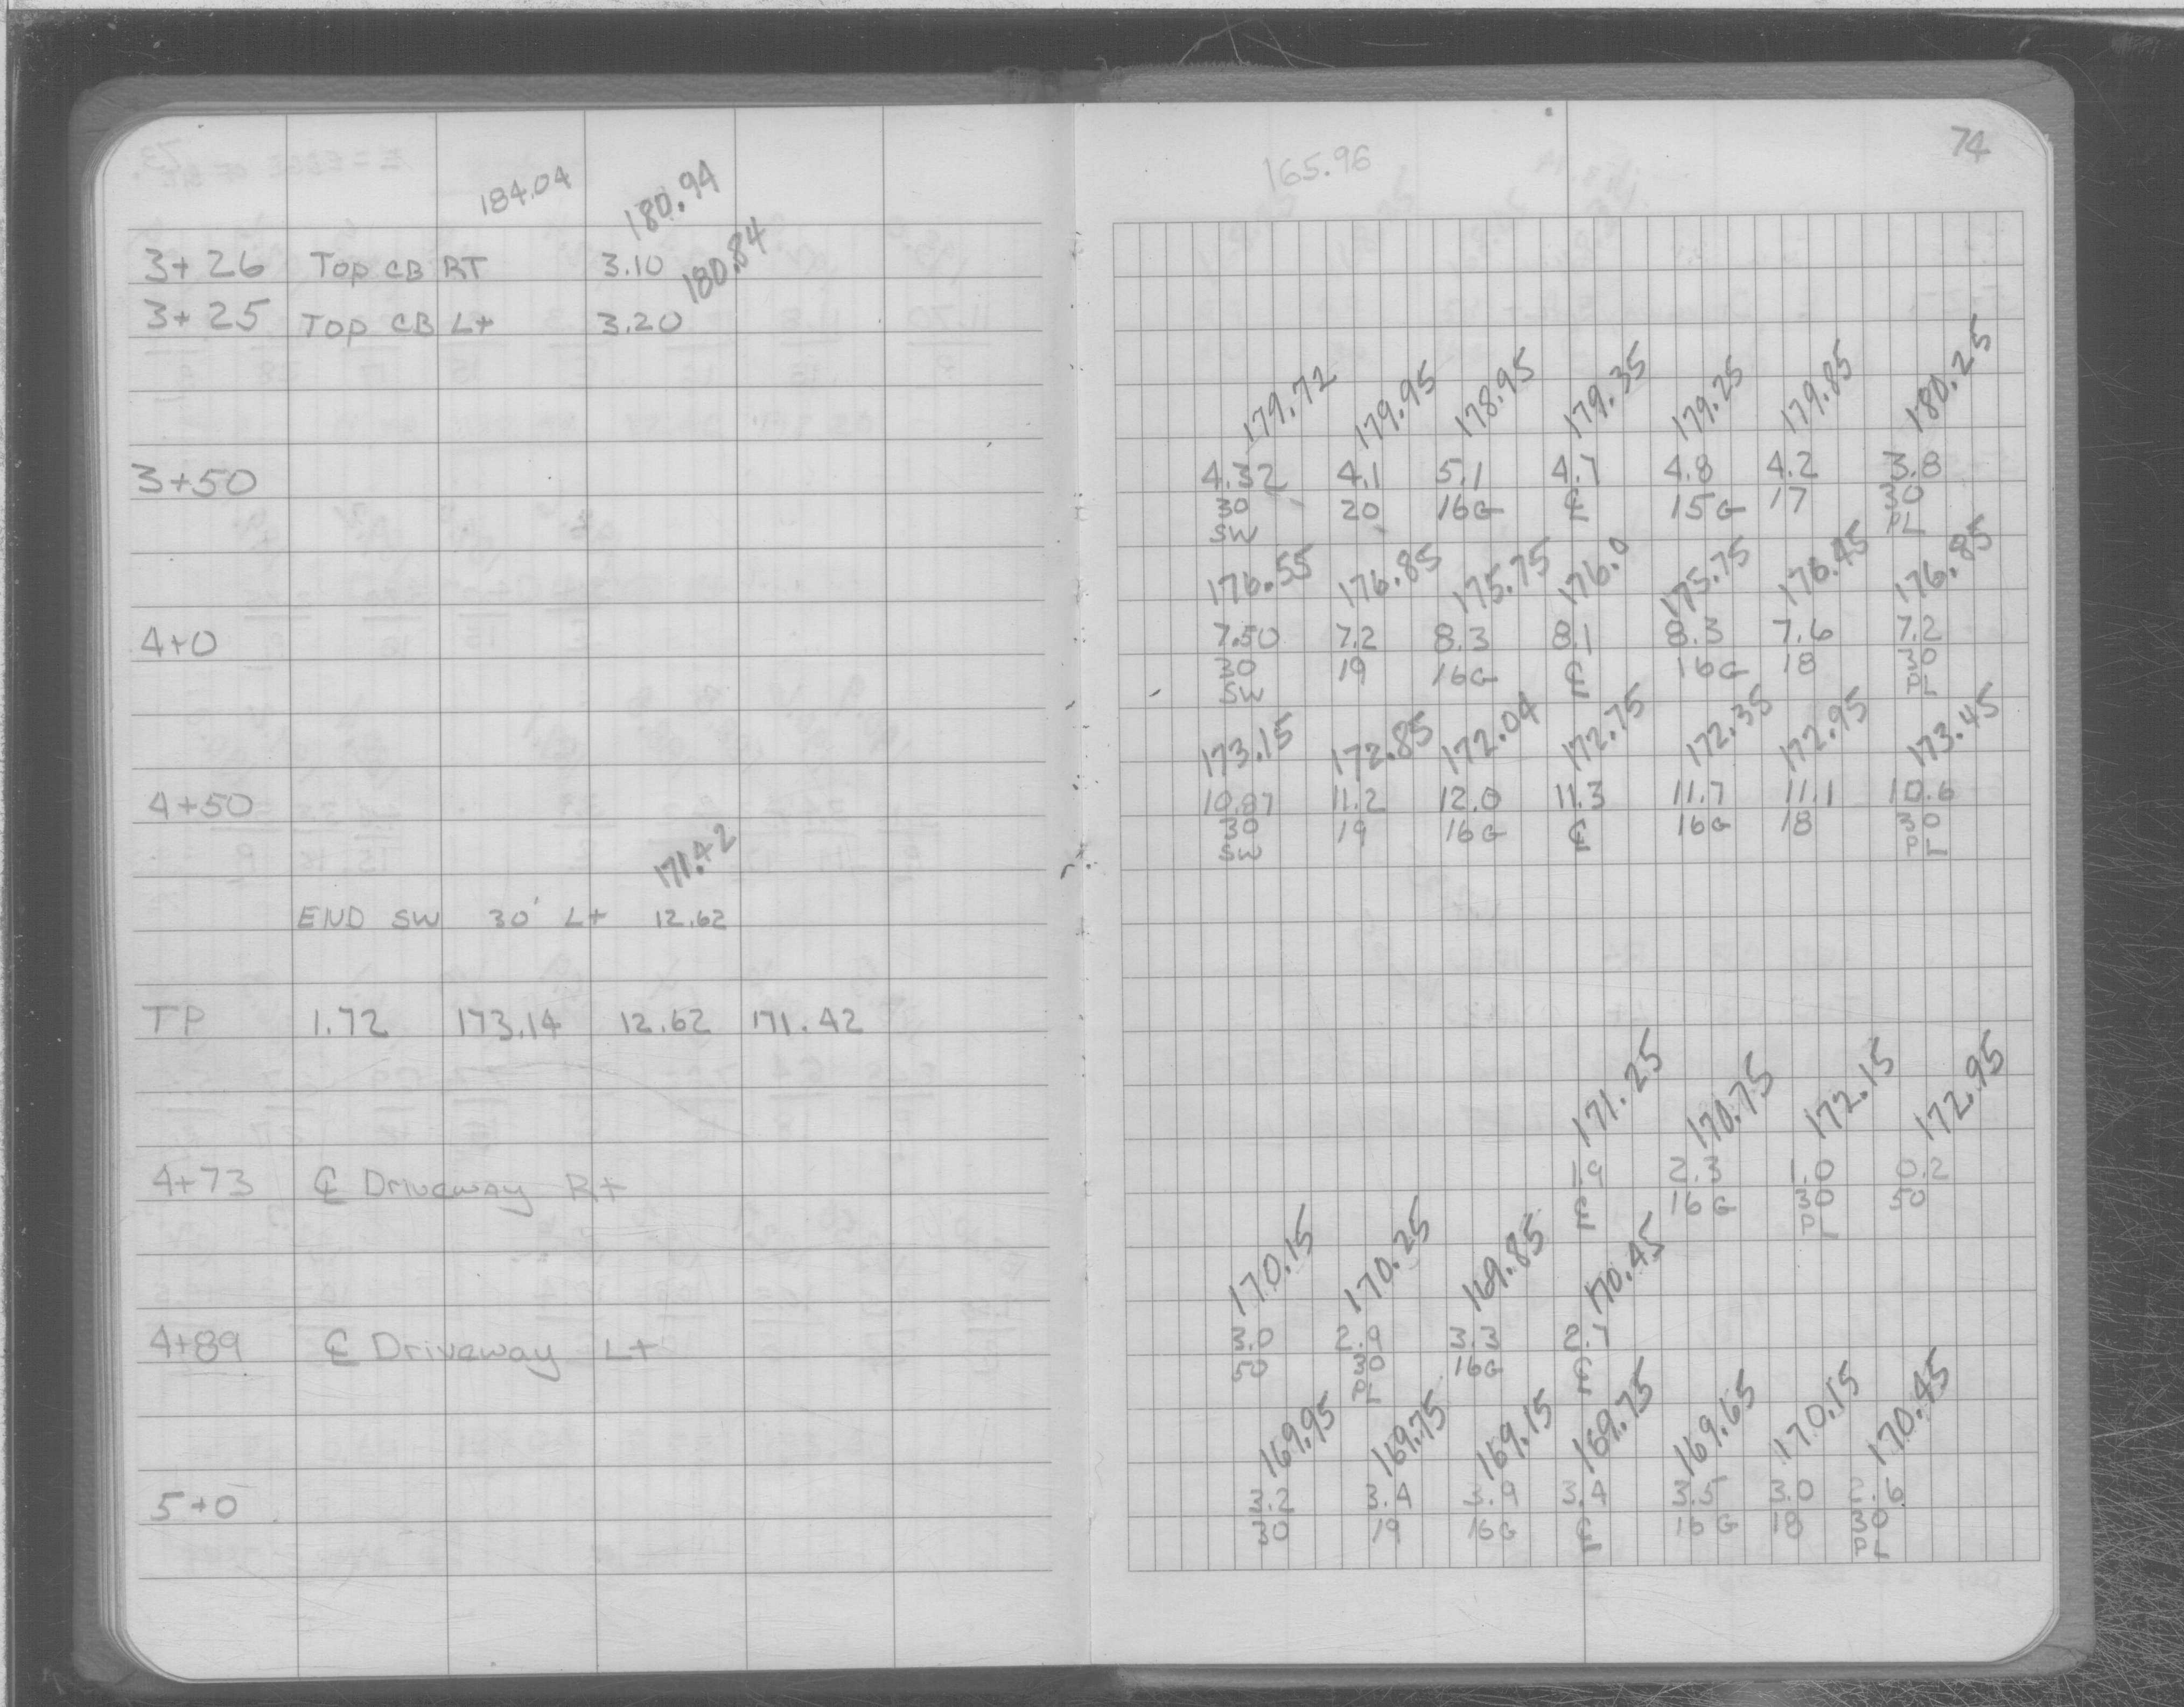 184.04 180.94
3+26 Top CB RT 3.10 180.84
3+25 Top CB Lt 3.20
3+50
4+0
4+50
171.42
END SW 30' Lt 12.62
TP 1.72 173.14 12.62 171.42
4+73 ℄ Driveway Rt
4+89 ℄ Driveway Lt
5+0
165.96 74
179.72 179.95 178.95 179.35 179.25 179.85 180.25
4.32 4.1 5.1 4.7 4.8 4.2 3.8
30 20 16G ℄ 15G 17 30
SW PL
176.55 176.85 175.75 176.0 175.75 176.45 176.85
7.50 7.2 8.3 8.1 8.3 7.6 7.2
30 19 16G ℄ 16G 18 30
SW PL
173.15 172.85 172.04 172.75 172.35 172.95 173.45
10.87 11.2 12.0 11.3 11.7 11.1 10.6
30 19 16G ℄ 16G 18 30
SW PL
171.25 170.75 172.15 172.95
1.9 2.3 1.0 0.2
℄ 16G 30 50
PL
170.15 170.25 169.85 170.45
3.0 2.9 3.3 2.7
50 30 16G ℄
PL
169.95 169.75 169.15 169.75 169.65 170.15 170.45
3.2 3.4 3.9 3.4 3.5 3.0 2.6
30 19 16G ℄ 16G 18 30
PL